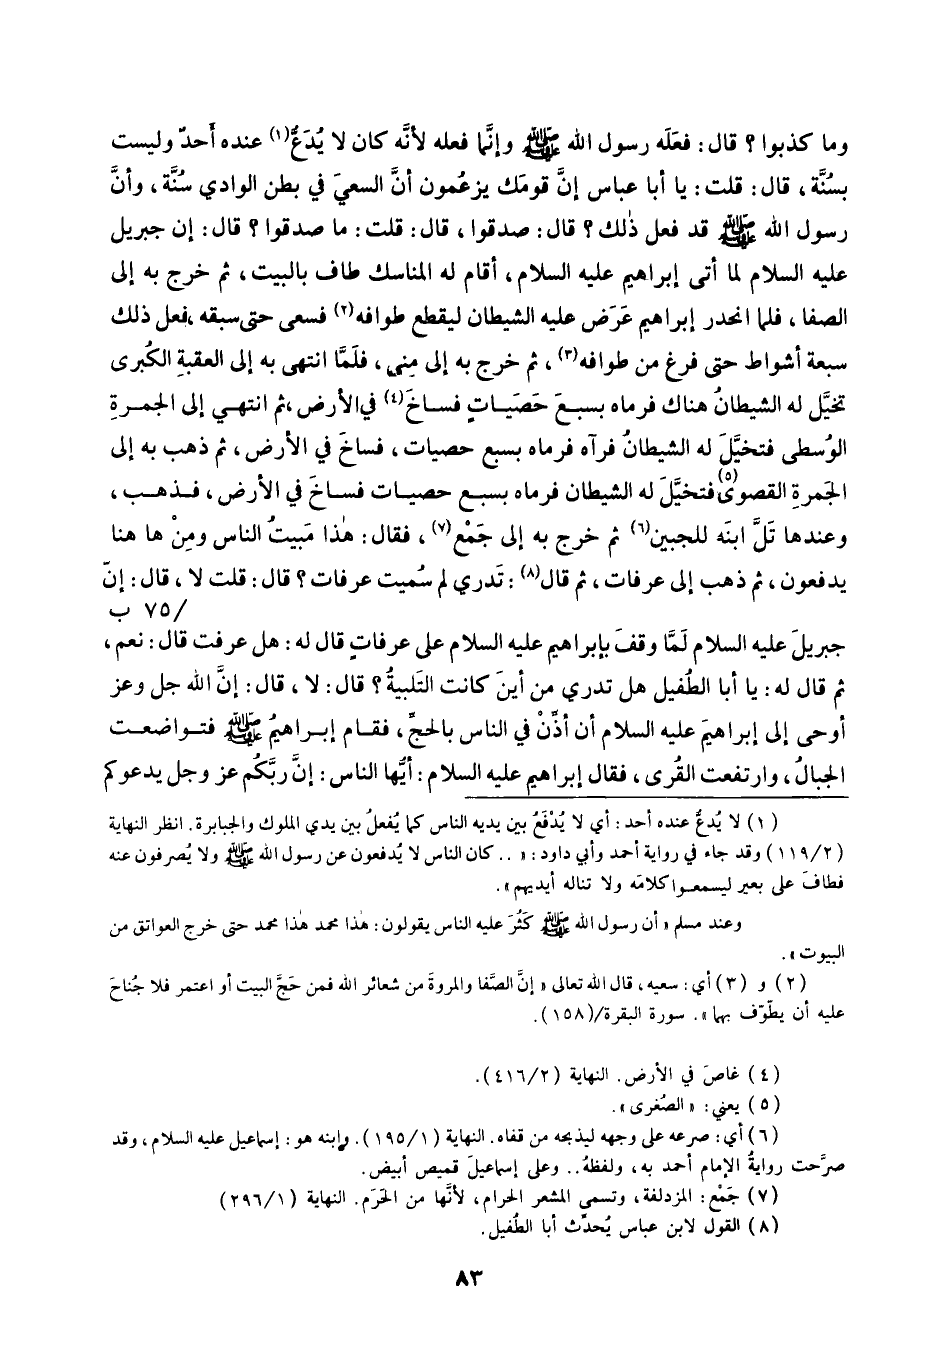 وما كذبوا ؟ قال : فعَلَه رسول الله ﷺ وإنَّما فعله لأنَّه كان لا يُدَعُّ(١) عنده أَحدٌ وليست
بسُنَّة ، قال : قلت : يا أبا عباس إنَّ قومَك يزعُمون أنَّ السعيَ في بطن الوادي سُنَّة ، وأنَّ
رسول الله ﷺ قد فعل ذٰلك ؟ قال : صدقوا ، قال : قلت : ما صدقوا ؟ قال : إن جبريل
عليه السلام لما أتى إبراهيم عليه السلام ، أقام له المناسك طاف بالبيت ، ثم خرج به إلى
الصفا ، فلما انحدر إبراهيم عَرَض عليه الشيطان ليقطع طوافه(٢) فسعى حتى سبقه ،فعل ذلك
سبعة أشواط حتى فرغ من طوافه(٣) ، ثم خرج به إلى مِنى ، فلَمَّا انتهى به إلى العقبةِ الكُبرى
تخيَّل له الشيطانُ هناك فرماه بسبعَ حَصَياتٍ فساخَ(٤) في الأرض ،ثم انتهى إلى الجمرةِ
الوُسطى فتخيَّلَ له الشيطانُ فرآه فرماه بسبع حصيات ، فساخَ في الأرض ، ثم ذهب به إلى
الجَمرةِ القصوىٰ(٥) فتخيَّلَ له الشيطان فرماه بسبع حصيات فساخَ في الأرض ، فذهب ،
وعندها تَلَّ ابنَه للجبين(٦) ثم خرج به إلى جَمْع(٧) ، فقال : هٰذا مَبيتُ الناس ومِنْ ها هنا
يدفعون ، ثم ذهب إلى عرفات ، ثم قال(٨) : تَدري لم سُميت عرفات ؟ قال : قلت لا ، قال : إنّ
/٧٥ ب
جبريلَ عليه السلام لَمَّا وقفَ بإبراهيم عليه السلام على عرفاتٍ قال له : هل عرفت قال : نعم ،
ثم قال له : يا أبا الطُفيل هل تدري من أينَ كانت التَلبيةُ ؟ قال : لا ، قال : إنَّ الله جل وعز
أوحى إلى إبراهيمَ عليه السلام أن أذّنْ في الناس بالحجِّ ، فقام إبراهيمُ ﷺ فتواضعت
الجبالُ ، وارتفعت القُرى ، فقال إبراهيم عليه السلام : أيُّها الناس : إنَّ ربَّكُم عز وجل يدعوكم
(١) لا يُدعُّ عنده أحد : أي لا يُدْفَعُ بين يديه الناس كما يُفعلُ بين يدي الملوك والجبابرة . انظر النهاية
(١١٩/٢) وقد جاء في رواية أحمد وأبي داود : « . . كان الناس لا يُدفعون عن رسول الله ﷺ ولا يُصرفون عنه
فطافَ على بعير ليسمعوا كلامَه ولا تناله أيديهم » .
وعند مسلم « أن رسول الله ﷺ كَثُرَ عليه الناس يقولون : هٰذا محمد هٰذا محمد حتى خرج العواتق من
البيوت » .
(٢) و (٣) أي : سعيه ، قال الله تعالى « إنَّ الصَّفا والمروةَ من شعائر الله فمن حَجَّ البيت أو اعتمر فلا جُناحَ
عليه أن يطّوّف بهما » . سورة البقرة/(١٥٨) .
(٤) غاصَ في الأرض . النهاية (٤١٦/٢) .
(٥) يعني : « الصُغرى » .
(٦) أي : صرعه على وجهه ليذبحه من قفاه . النهاية (١٩٥/١) . وإبنه هو : إسماعيل عليه السلام ، وقد
صرَّحت روايةُ الإمام أحمد به ، ولفظهُ . . وعلى إسماعيلَ قميص أبيض .
(٧) جَمْع : المزدلفة ، وتسمى المشعر الحرام ، لأنَّها من الحَرَم . النهاية (٢٩٦/١)
(٨) القول لابن عباس يُحدّث أبا الطُفيل .
٨٣